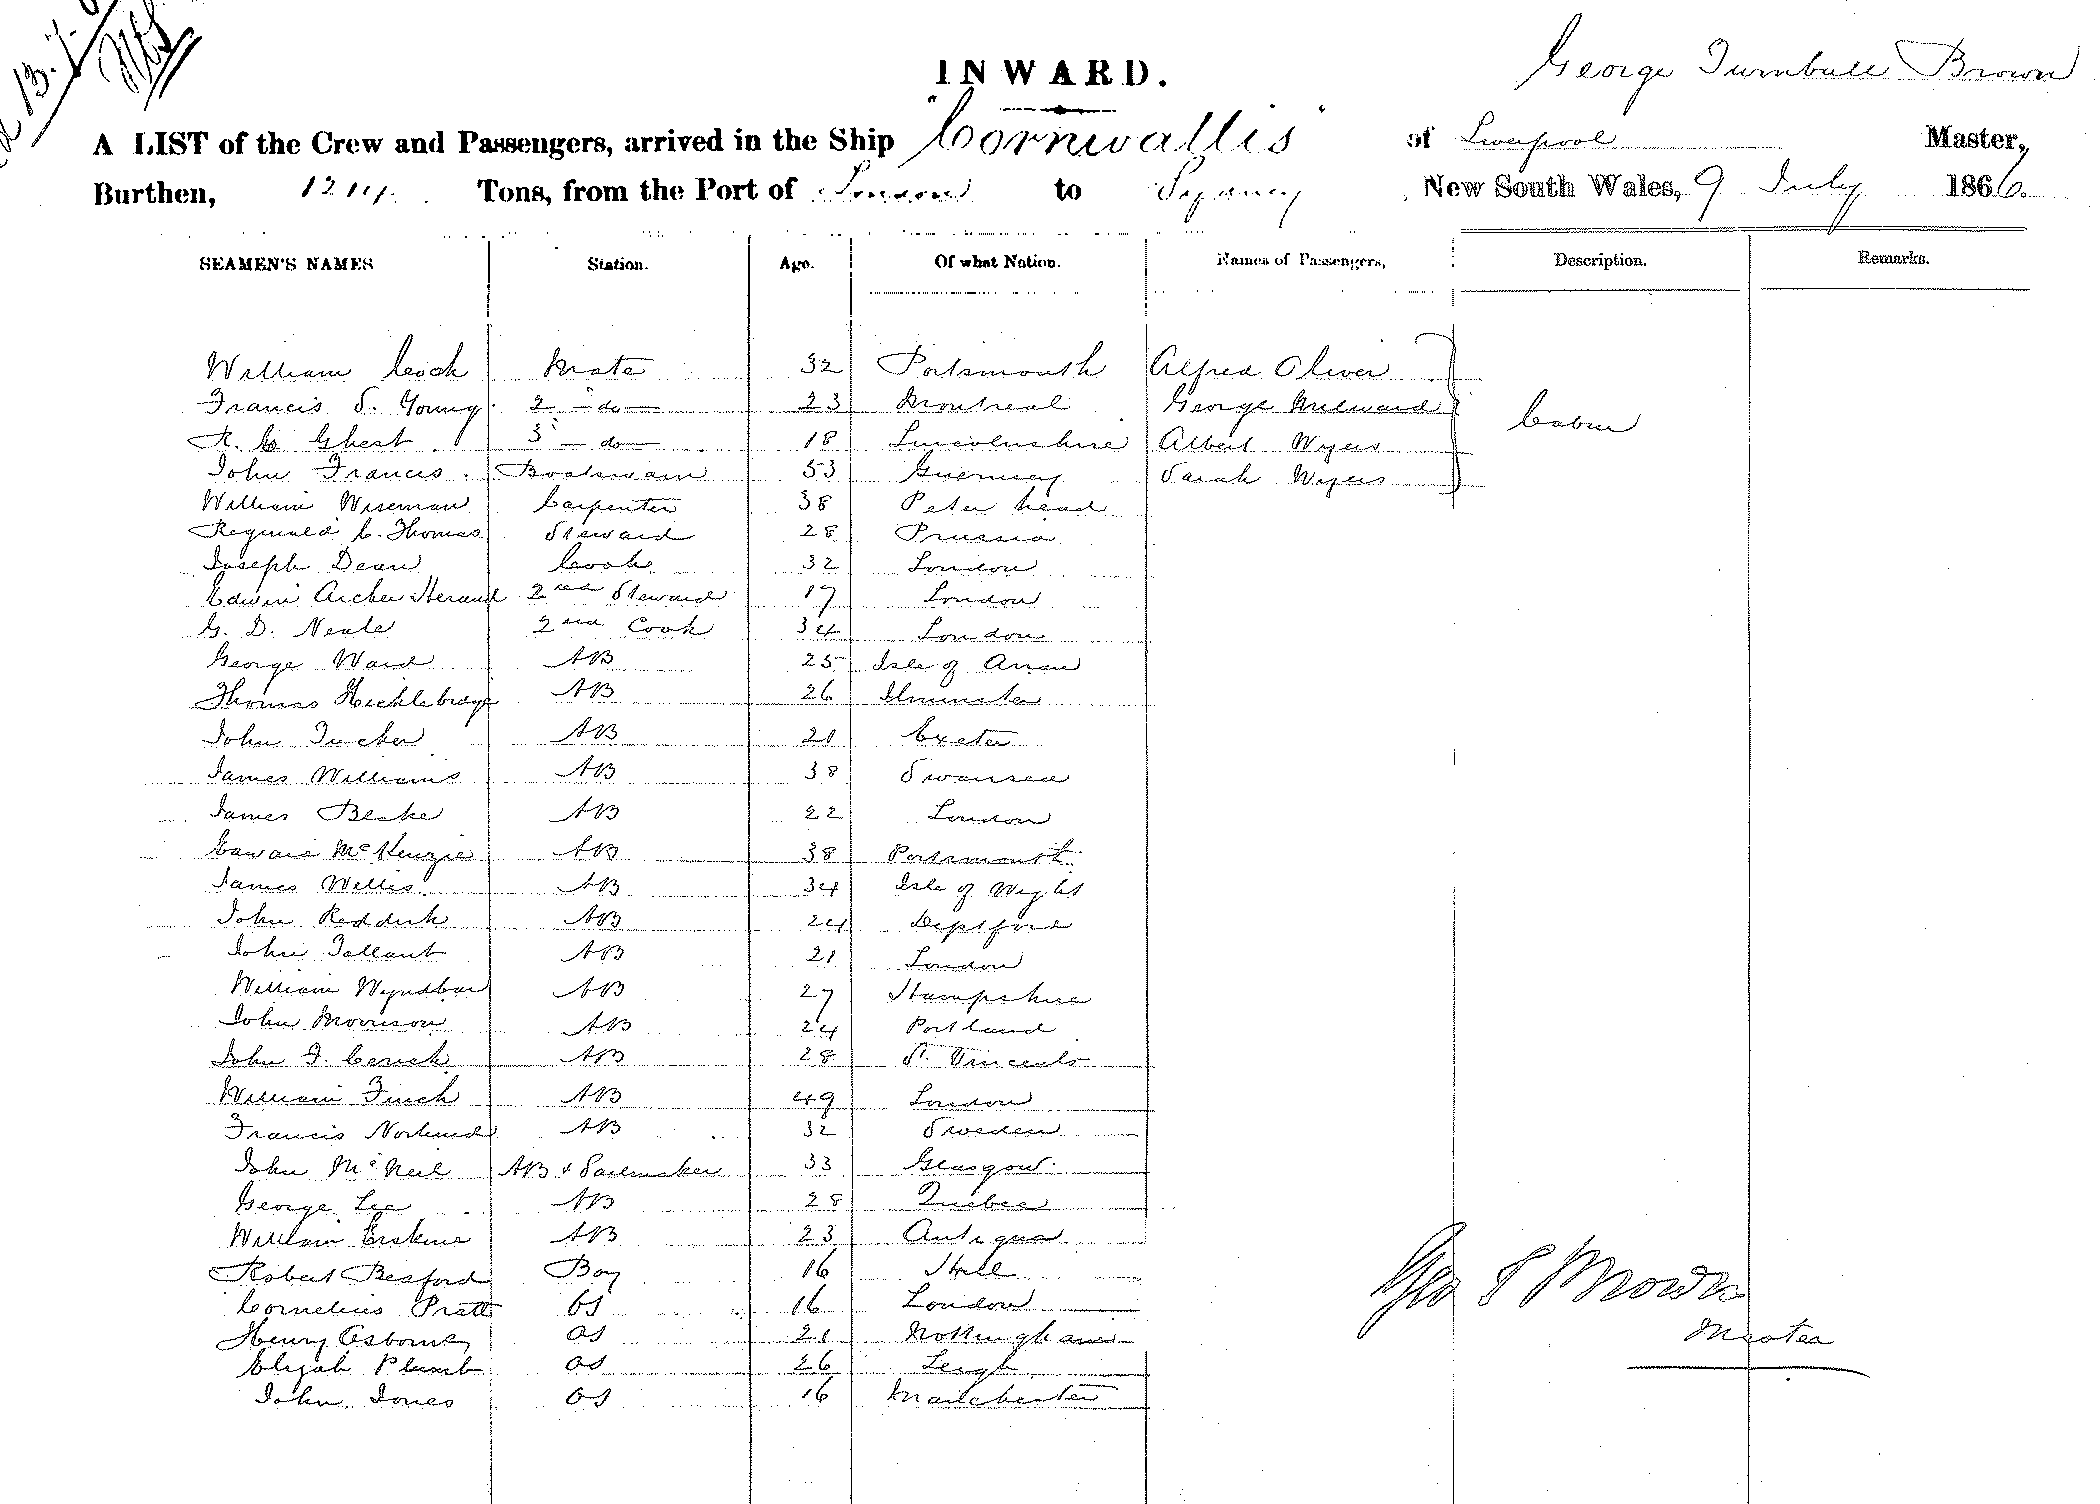 13.7.
INWARD.
George Turnbull Brown
A LIST of the Crew and Passengers, arrived in the Ship "Cornwallis" of Liverpool Master,
Burthen, 1214 Tons, from the Port of London to Sydney New South Wales, 9 July 1866.
SEAMEN'S NAMES Station. Age. Of what Nation. Names of Passengers, Description. Remarks.
William Cock Mate 32 Portsmouth Alfred Oliver
Francis S. Young 2 - do - 23 Montreal George Milward Cabin
R. C. Ghest 3 - do - 18 Lincolnshire Albert Wyers
John Francis Boatswain 53 Guernsey Sarah Wyers
William Wiseman Carpenter 38 Peter head
Reginald C. Thomas Steward 28 Prussia
Joseph Dean Cook 32 London
Edwin Archer Heraud 2nd Steward 17 London
G. D. Neale 2nd Cook 34 London
George Ward AB 25 Isle of Arran
Thomas AB 26 Ilminster
John Tucker AB 21 Exeter
James Williams AB 38 Swansea
James Beake AB 22 London
Edward McKenzie AB 38 Portsmouth
James Willis AB 34 Isle of Wight
John Reddick AB 24 Deptford
John Tallant AB 21 London
William Wyndham AB 27 Hampshire
John Morrison AB 24 Portland
John F. AB 28 St. Vincents
William Finch AB 49 London
Francis Norlund AB 32 Sweden
John McNeil AB & Sailmaker 33 Glasgow
George Lee AB 28 Quebec
William Erskine AB 23 Antigua
Robert Besford Boy 16 Hull
Cornelius Pratt OS 16 London
Henry Osborne OS 21 Nottingham
Elijah Plumb OS 26 Leigh
John Jones OS 16 Manchester
Geo T Brown
Master